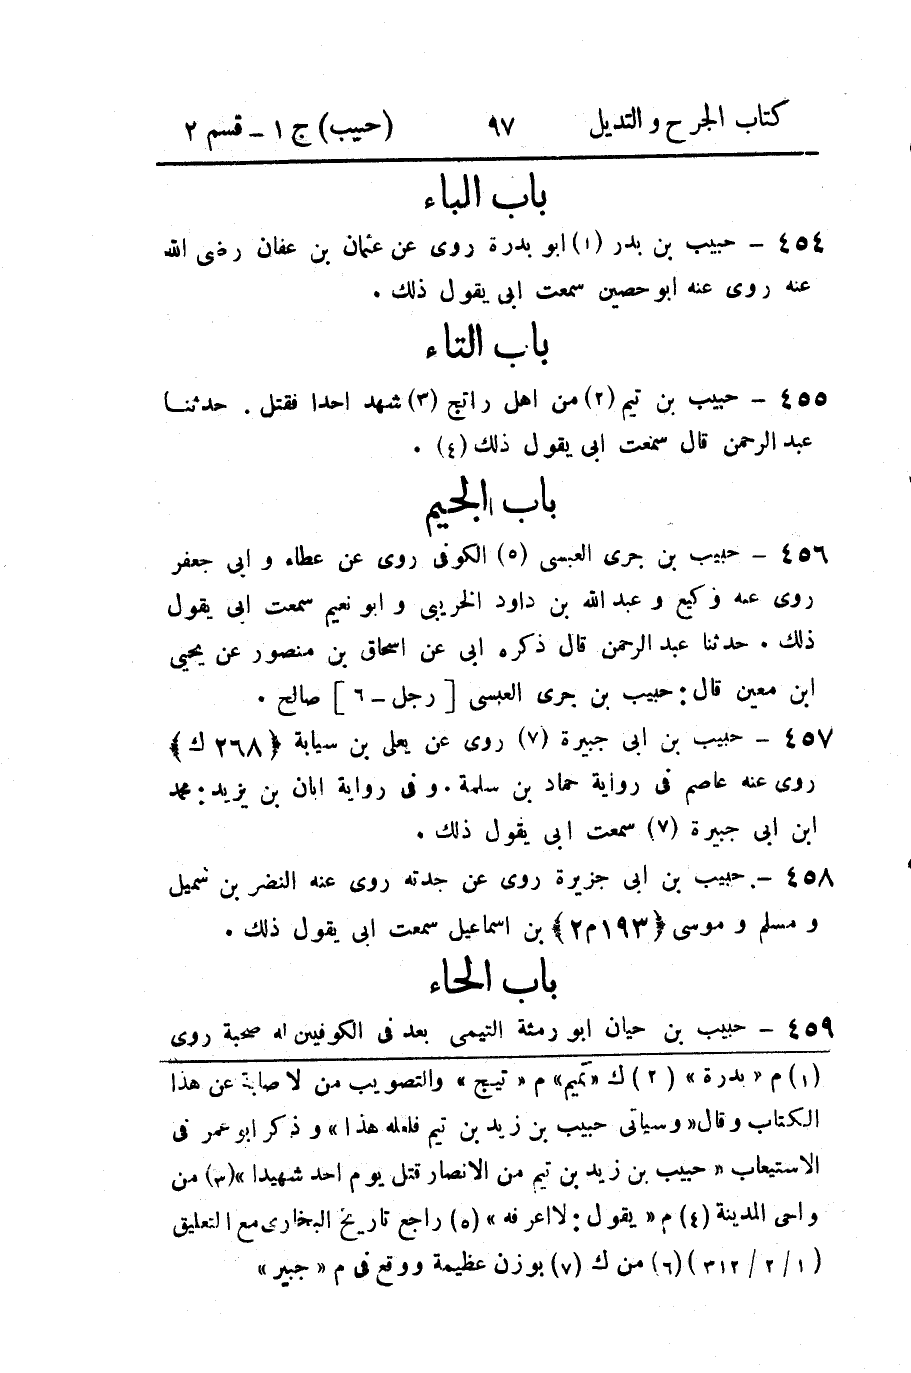 كتاب الجرح والتديل ٩٧ (حبيب) ج ١ - قسم ٢
باب الباء
٤٥٤ - حبيب بن بدر (١) ابو بدرة روى عن عثمان بن عفان رضى الله
عنه روى عنه ابو حصين سمعت ابى يقول ذلك .
باب التاء
٤٥٥ - حبيب بن تيم (٢) من اهل راتج (٣) شهد احدا فقتل . حدثنا
عبد الرحمن قال سمعت ابى يقول ذلك (٤) .
باب الجيم
٤٥٦ - حبيب بن جرى العبسى (٥) الكوفى روى عن عطاء و ابى جعفر
روى عنه وكيع و عبد الله بن داود الخريبى و ابو نعيم سمعت ابى يقول
ذلك . حدثنا عبد الرحمن قال ذكره ابى عن اسحاق بن منصور عن يحيى
ابن معين قال : حبيب بن جرى العبسى [ رجل - ٦ ] صالح .
٤٥٧ - حبيب بن ابى جبيرة (٧) روى عن يعلى بن سيابة ﴿٢٦٨ ك﴾
روى عنه عاصم فى رواية حماد بن سلمة . و فى رواية ابان بن يزيد : محمد
ابن ابى جبيرة (٧) سمعت ابى يقول ذلك .
٤٥٨ - حبيب بن ابى جزيرة روى عن جدته روى عنه النضر بن شميل
و مسلم و موسى ﴿١٩٣م٢﴾ بن اسماعيل سمعت ابى يقول ذلك .
باب الحاء
٤٥٩ - حبيب بن حيان ابو رمثة التيمى بعد فى الكوفيين له صحبة روى
(١) م « بدرة » (٢) ك «تميم» م « تيج » والتصويب من لاصابة عن هذا
الكتاب وقال « وسياتى حبيب بن زيد بن تيم فلعله هذا » و ذكر ابو عمر فى
الاستيعاب « حبيب بن زيد بن تيم من الانصار قتل يوم احد شهيدا » (٣) من
واحى المدينة (٤) م « يقول : لا اعرفه » (٥) راجع تاريخ البخارى مع التعليق
(١/٢/٣١٢) (٦) من ك (٧) بوزن عظيمة ووقع فى م « جبير »